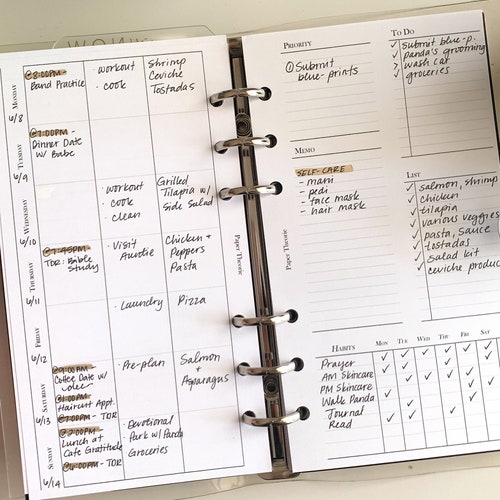 MONDAY
6/8
@8:00PM -
Band Practice
workout
· cook
Shrimp
Ceviche
Tostadas
TUESDAY
6/9
@7:00PM -
Dinner Date
w/ Babe
WEDNESDAY
6/10
· workout
· cook
· clean
Grilled
Tilapia w/
Side Salad
THURSDAY
6/11
@7:45PM -
TOR: Bible
Study
· Visit
Auntie
Chicken +
Peppers
Pasta
FRIDAY
6/12
· Laundry
Pizza
SATURDAY
6/13
Coffee Date w/
Haircut Appt.
- TOR
· Pre-plan
Salmon
+
Asparagus
SUNDAY
6/14
@2:00PM -
Lunch at
Cafe Gratitude
@6:00PM - TOR
· Devotional
Park w/ Panda
Groceries
Paper Theorie
Paper Theorie
PRIORITY
① Submit
blue-prints
MEMO
SELF-CARE
- mani
- pedi
- face mask
- hair mask
TO DO
✓ submit blue-p.
✓ panda's grooming
> wash car
✓ groceries
LIST
✓ salmon, shrimp
✓ chicken
✓ tilapia
✓ various veggies
✓ pasta, sauce
✓ tostadas
✓ salad kit
✓ ceviche produc
HABITS MON TUE WED THU FRI SAT
Prayer
AM Skincare
PM Skincare
Walk Panda
Journal
Read